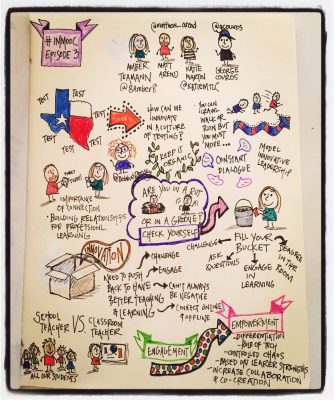 #INMOOC
EPISODE 3
@matthew_arend
@gcouros
AMBER
TEAMANN
@8Amber8
MATT
AREND
KATIE
MARTIN
@KATIEMTLC
GEORGE
COUROS
TEST
TEST
TEST
TEST
TEST
TEST
HOW CAN WE
INNOVATE
IN A CULTURE
OF TESTING?
YOU CAN
CRAWL
WALK OR
RUN BUT
YOU MUST
MOVE...
KEEP IT
ORGANIC
MODEL
INNOVATIVE
LEADERSHIP
CONSTANT
DIALOGUE
IMPORTANCE
OF CONNECTION
· BUILDING RELATIONSHIPS
FOR PROFESSIONAL
LEARNING
ARE YOU IN A RUT
OR IN A GROOVE?
CHECK YOURSELF
FILL YOUR
BUCKET
CHALLENGE
ASK
QUESTIONS
ENGAGE
IN
LEARNING
IN THE
ROOM
INNOVATION
NEED TO PUSH
BACK TO HAVE
BETTER TEACHING
& LEARNING
CHALLENGE
ENGAGE
CAN'T ALWAYS
BE NEGATIVE
CONNECT ONLINE
& OFFLINE
SCHOOL
TEACHER
VS.
CLASSROOM
TEACHER
ALL OUR STUDENTS
ENGAGEMENT
EMPOWERMENT
- DIFFERENTIATION
- ROLE OF TECH
- CONTROLLED CHAOS
- BASED ON LEARNER STRENGTHS
- INCREASE COLLABORATION
& CO-CREATION